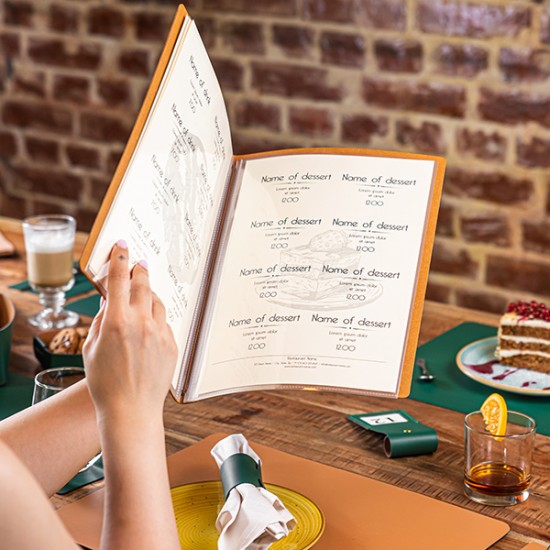 Name of drink
12:00
Name of drink
12:00
Name of drink
12:00
Name of drink
12:00
Name of dessert
Lorem ipsum dolor
sit amet
12:00
Name of dessert
Lorem ipsum dolor
sit amet
12:00
Name of dessert
Lorem ipsum dolor
sit amet
12:00
Name of dessert
Lorem ipsum dolor
sit amet
12:00
Name of dessert
Lorem ipsum dolor
sit amet
12:00
Name of dessert
Lorem ipsum dolor
sit amet
12:00
Name of dessert
Lorem ipsum dolor
sit amet
12:00
Name of dessert
Lorem ipsum dolor
sit amet
12:00
12